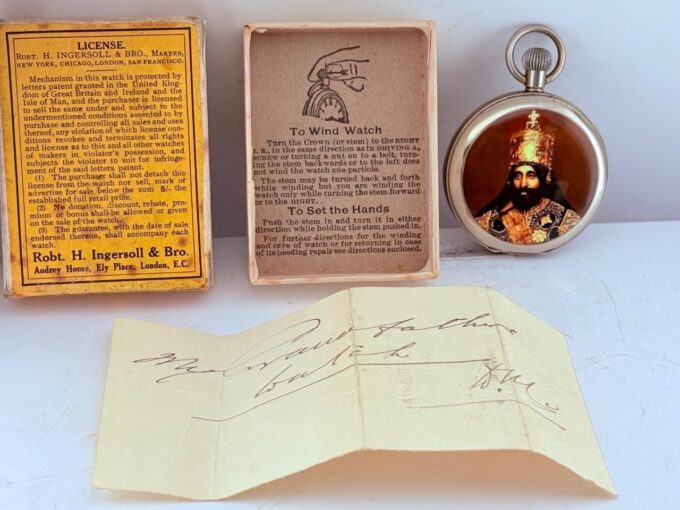 LICENSE.
ROBT. H. INGERSOLL & BRO., MAKERS,
NEW YORK, CHICAGO, LONDON, SAN FRANCISCO.
Mechanism in this watch is protected by
letters patent granted in the United King-
dom of Great Britain and Ireland and the
Isle of Man, and the purchaser is licensed
to sell the same under and subject to the
undermentioned conditions assented to by
purchase and controlling all sales and uses
thereof, any violation of which license con-
ditions revokes and terminates all rights
and license as to this and all other watches
of makers in violator's possession, and
subjects the violator to suit for infringe-
ment of the said letters patent.
(1) The purchaser shall not detach this
license from the watch nor sell, mark or
advertise for sale below the sum 5/- the
established full retail price.
(2) No donation, discount, rebate, pre-
mium or bonus shall be allowed or given
on the sale of the watch.
(3) The guarantee, with the date of sale
endorsed thereon, shall accompany each
watch.
Robt. H. Ingersoll & Bro.
Audrey House, Ely Place, London, E.C.
To Wind Watch
Turn the Crown (or stem) to the RIGHT
I. E., in the same direction as in DRIVING A
SCREW or turning a nut on to a bolt, turn-
ing the stem backwards or to the left does
not wind the watch one particle.
The stem may be turned back and forth
while winding but you are winding the
watch only while turning the stem forward
or to the RIGHT.
To Set the Hands
Push the stem in and turn it in either
direction while holding the stem pushed in.
For further directions for the winding
and care of watch or for returning in case
of its needing repair see directions enclosed.
My Grandfathers
watch
D.M.